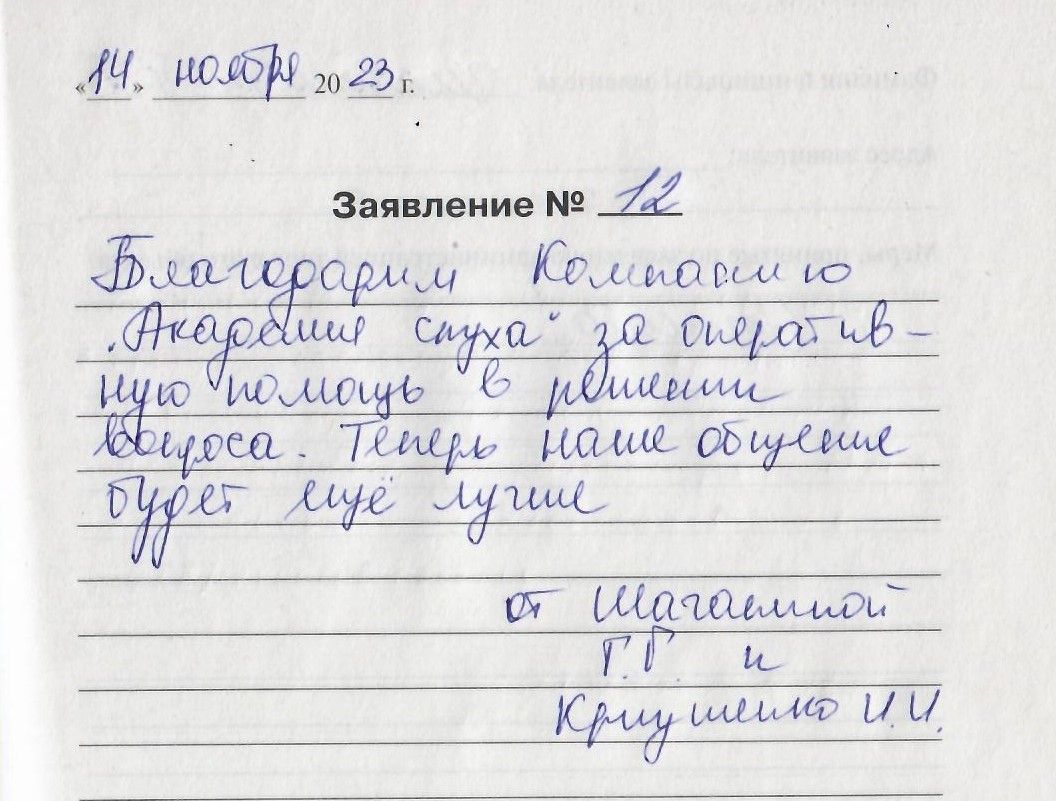 «14» ноября 2023 г.
Заявление № 12
Благодарим Компанию
„Академия слуха“ за оператив-
ную помощь в решении
вопроса. Теперь наше общение
будет ещё лучше
от
Г.Г. и
И.И.